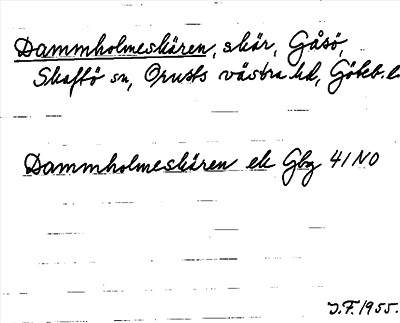 Dammholmeskären, skär, Gåsö,
Skaftö sn, Orusts västra hd, Göteb. l
Dammholmeskären ek Gbg 41 NO
J.F. 1955.